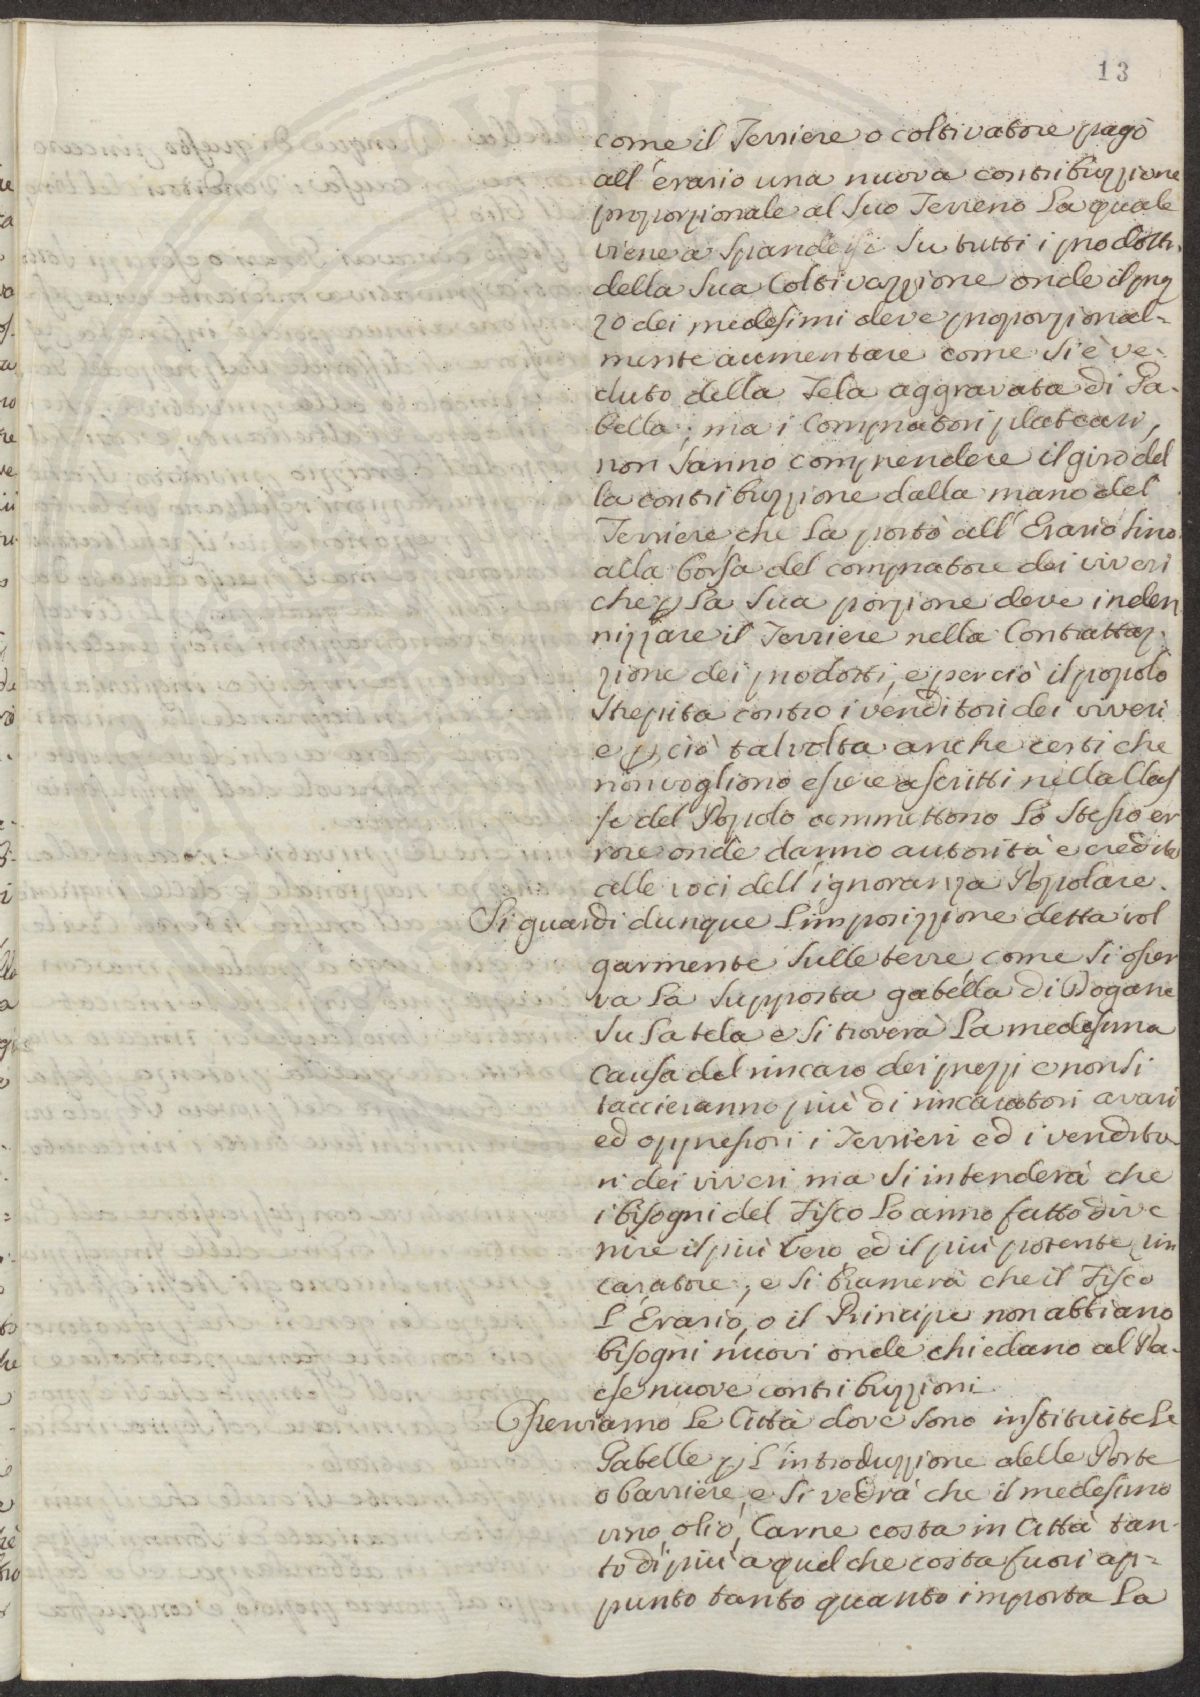 13
come il Terriere o coltivatore pagò
all'erario una nuova contribuzzione
proporzionale al suo Terreno La quale
viene a spandersi su tutti i prodotti
della sua Coltivazzione onde il prez
zo dei medesimi deve proporzional=
mente aumentare come si è ve-
duto della Tela aggravata di Ga-
bella; ma i Compratori plateari,
non sanno comprendere il giro del
la contribuzzione dalla mano del
Terriere che la portò all'Erario sino
alla borsa del compratore dei viveri
che p La sua porzione deve inden
nizzare il Terriere nella Contrattaz-
zione dei prodotti, e perciò il popolo
strepita contro i venditori dei viveri
e p ciò talvolta anche certi che
non vogliono essere ascritti nella Clas
se del Popolo ammettono Lo stesso er
rore onde danno autorità e credito
alle voci dell'ignoranza Popolare.
Si guardi dunque L'imposizzione detta vol
garmente sulle terre, come si osser
va La supposta gabella di Dogane
su La tela e si troverà La medesima
causa del rincaro dei prezzi e non si
taccieranno più di rincaratori avari
ed oppressori i Terrieri ed i vendito
ri dei viveri ma si intenderà che
i bisogni del Fisco Lo anno fatto dive
nire il più vero ed il più potente rin
caratore, e si bramerà che il Fisco
L'Erario, o il Principe non abbiano
bisogni nuovi onde chiedano al Pa-
ese nuove contribuzzioni.
Osserviamo Le Città dove sono instituite Le
Gabelle p L'introduzzione delle Porte
o barriere, e si vedrà che il medesimo
vino, olio, Carne costa in Città tan
to di più a quel che costa fuori ap=
punto tanto quanto importa La